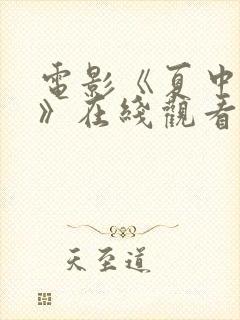 電影《夏中
》在綫觀看
天至道